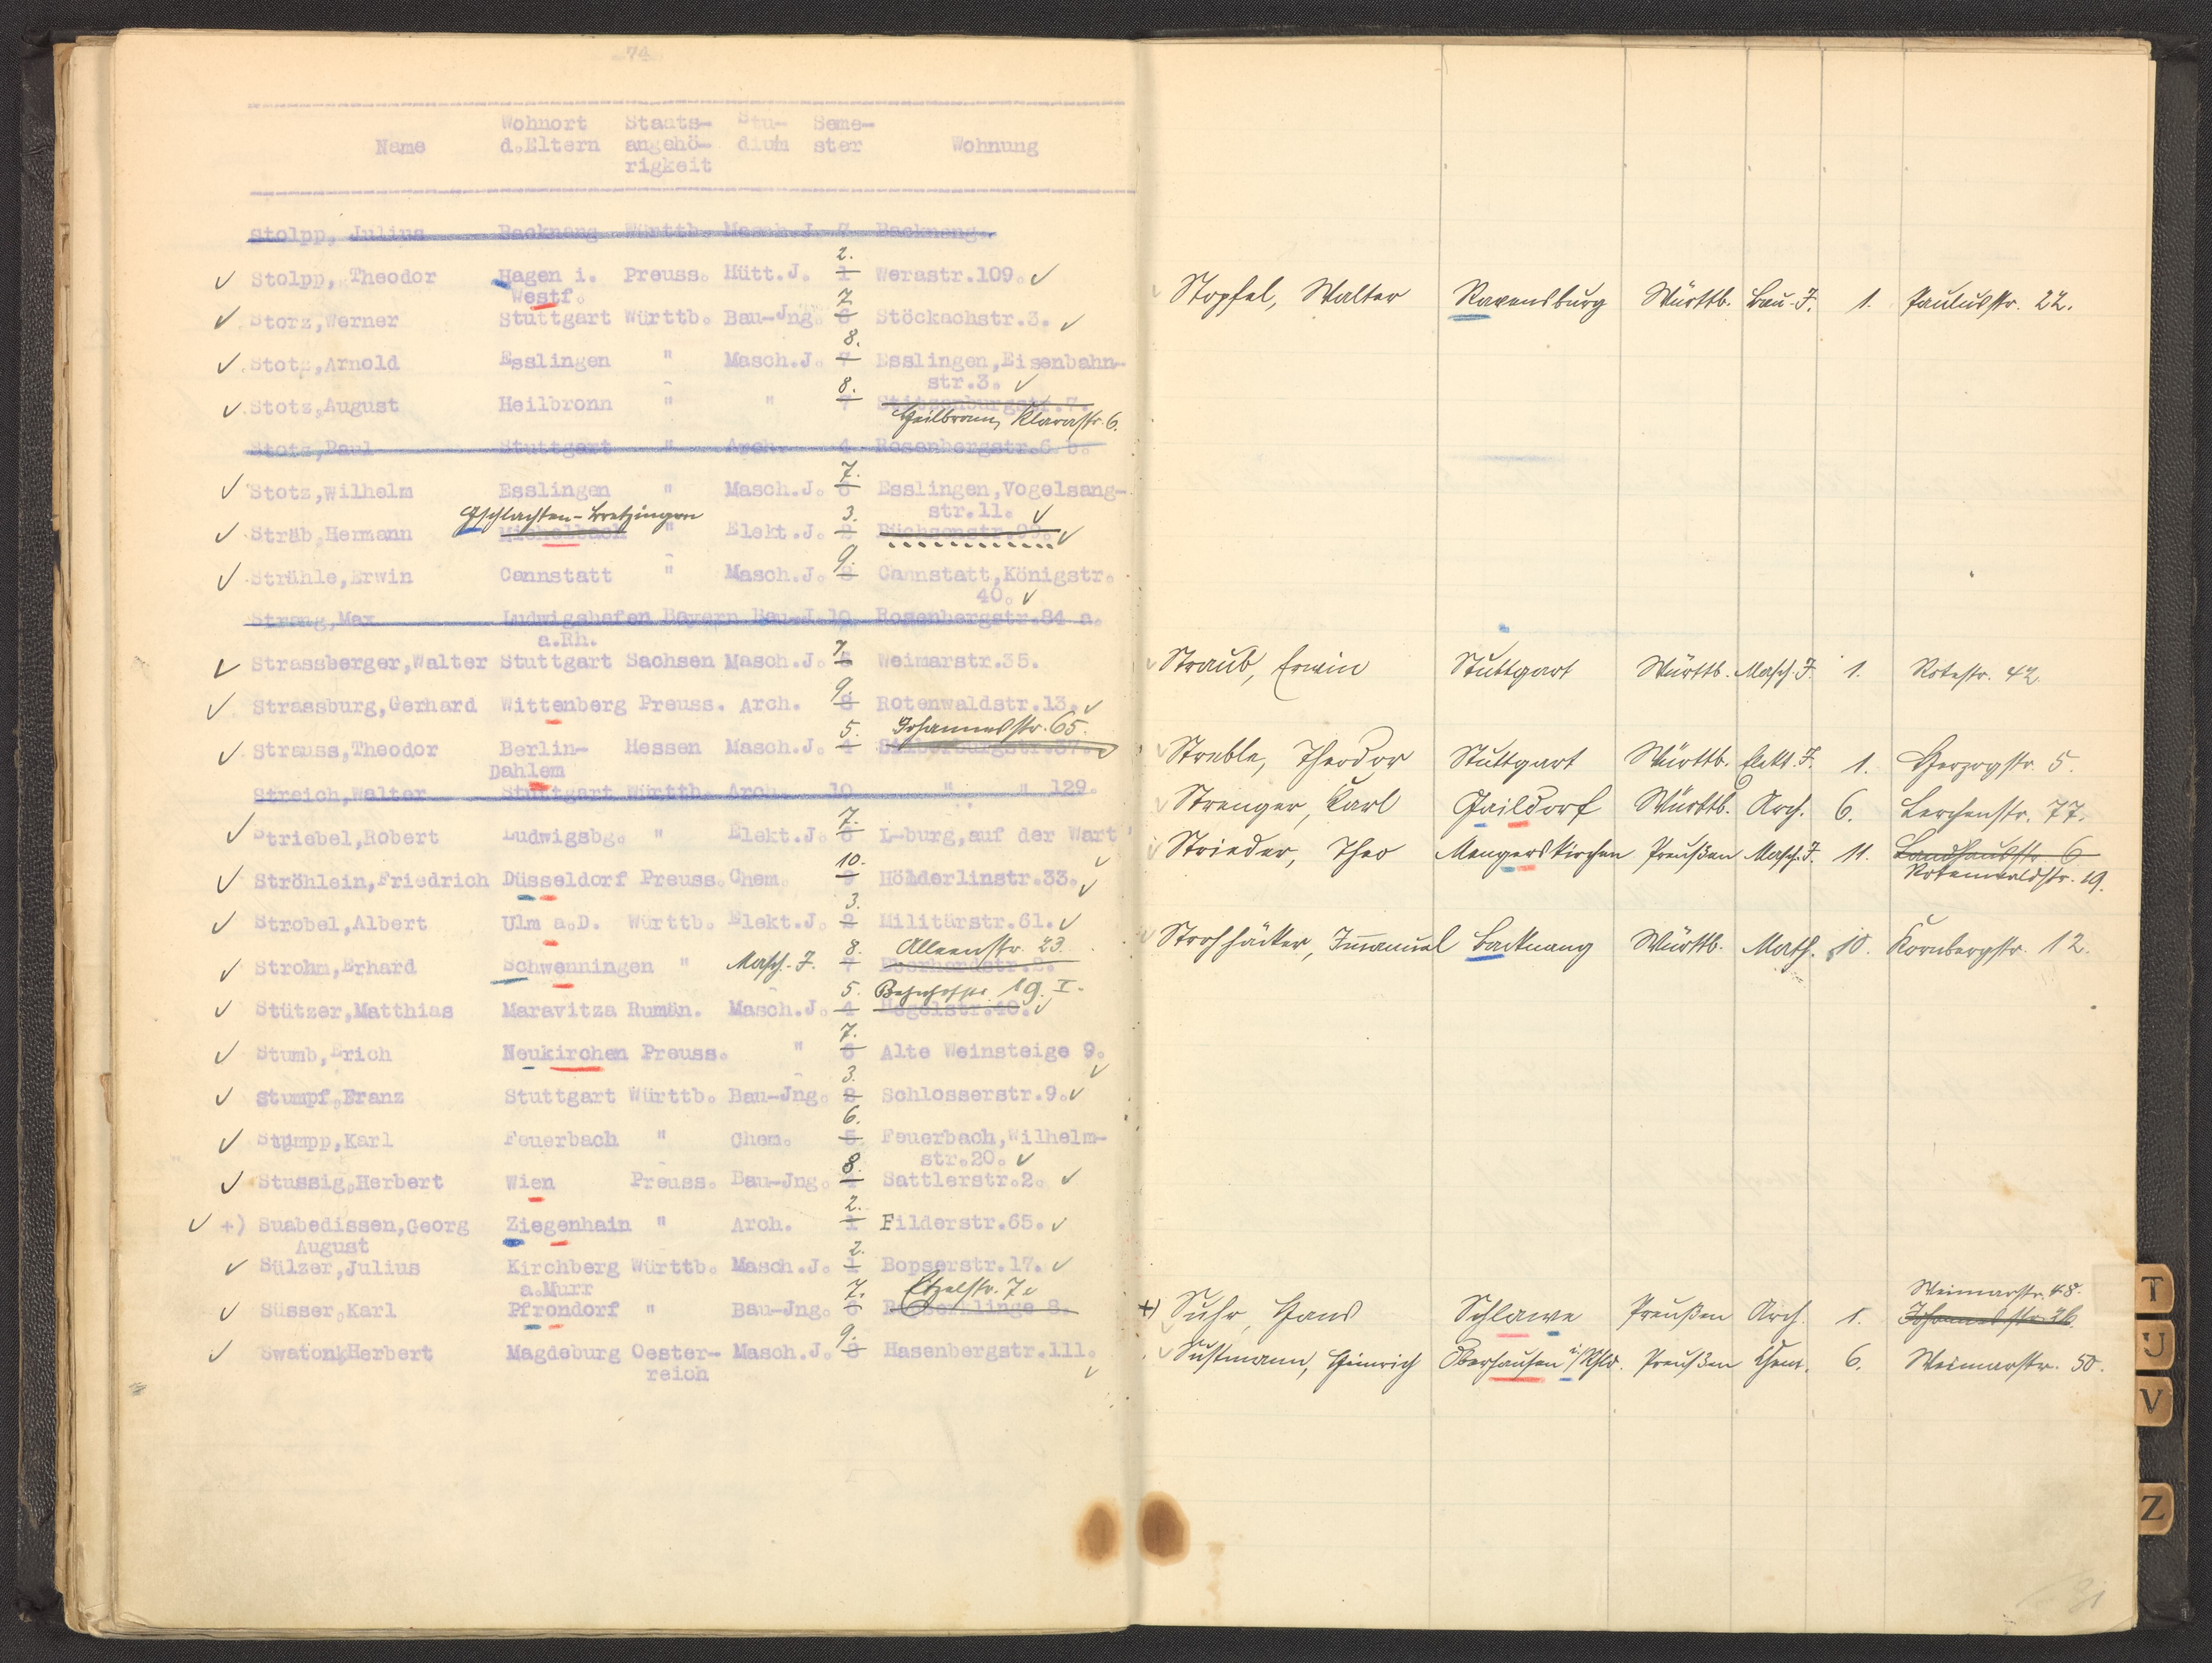 74
Wohnort Staats- Stu- Seme-
Name d.Eltern angehö- dium ster Wohnung
rigkeit
Stolpp, Julius Backnang Württb. Masch.J. 7 Backnang.
2.
Stolpp, Theodor Hagen i. Preuss. Hütt.J. 1 Werastr.109.
Westf. 7.
Storz,Werner Stuttgart Württb. Bau-Jng. 6 Stöckachstr.3.
8.
Stotz,Arnold Esslingen " Masch.J. 7 Esslingen,Eisenbahn-
8. str.3.
Stotz,August Heilbronn " " 7 Stitzenburgstr.7.
Heilbronn, Klarastr. 6.
Stotz,Paul Stuttgart " Arch. 4 Rosenbergstr.6 b.
7.
Stotz,Wilhelm Esslingen " Masch.J. 6 Esslingen,Vogelsang-
3. str.11.
Sträb,Hermann Michelbach " Elekt.J. 2 Büchsenstr.99.
9.
Strähle,Erwin Cannstatt " Masch.J. 8 Cannstatt,Königstr.
40.
Strang,Max Ludwigshafen Bayern Bau-J.10 Rosenbergstr.84 a.
a.Rh. 7.
Strassberger,Walter Stuttgart Sachsen Masch.J. Weimarstr.35.
9.
Strassburg,Gerhard Wittenberg Preuss. Arch. 8 Rotenwaldstr.13.
5. Johannesstr. 65.
Strauss,Theodor Berlin- Hessen Masch.J. 4 Silberburgstr.37.
Dahlem
Streich,Walter Stuttgart Württb. Arch. 10 " " 129.
7.
Striebel,Robert Ludwigsbg. " Elekt.J. 6 L-burg,auf der Wart
10.
Ströhlein,Friedrich Düsseldorf Preuss. Chem. 9 Hölderlinstr.33.
3.
Strobel,Albert Ulm a.D. Württb. Elekt.J. 2 Militärstr.61.
Masch. J. 8. Alleenstr. 23.
Strohm,Erhard Schwenningen " 7 Eberhardstr.2.
5. Bahnhofstr. 19. I.
Stützer,Matthias Maravitza Rumän. Masch.J. 4 Hegelstr.40.
7.
Stumb,Erich Neukirchen Preuss. " 6 Alte Weinsteige 9.
3.
Stumpf,Franz Stuttgart Württb. Bau-Jng. 2 Schlosserstr.9.
6.
Stumpp,Karl Feuerbach " Chem. 5 Feuerbach,Wilhelm-
8. str.20.
Stussig,Herbert Wien Preuss. Bau-Jng. Sattlerstr.2.
2.
+) Suabedissen,Georg Ziegenhain " Arch. 1 Filderstr.65.
August 2.
Sülzer,Julius Kirchberg Württb. Masch.J. 1 Bopserstr.17.
a.Murr 7. Etzelstr. 7.
Süsser,Karl Pfrondorf " Bau-Jng. 6
9.
Swatonk,Herbert Magdeburg Oester- Masch.J. 8 Hasenbergstr.111.
reich
Stopfel, Walter Ravensburg Württb. Bau-J. 1. Paulusstr. 22.
Straub, Erwin Stuttgart Württb. Masch. J. 1. Rotestr. 42.
Streble, Theodor Stuttgart Württb. Elekt. J. 1. Herzogstr. 5.
Strenger, Karl Gaildorf Württb. Arch. 6. Lerchenstr. 77.
Strieder, Theo Mengerskirchen Preußen Masch. J. 11. Landhausstr. 6
Rotenwaldstr. 19.
Strohhäcker, Immanuel Backnang Württb. Math. 10. Kornbergstr. 12.
Weimarstr. 48.
+) Suhr, Hans Schlawe Preußen Arch. 1. Johannesstr. 26.
Sustmann, Heinrich Oberhausen i/Rhld. Preußen Chem. 6. Weimarstr. 50.
T
U
V
Z